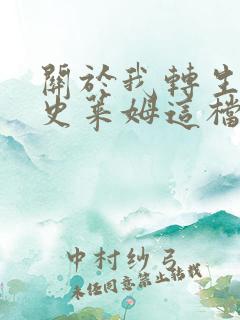 關於我轉生
史萊姆這檔
中村紗弓
未经同意禁止转载